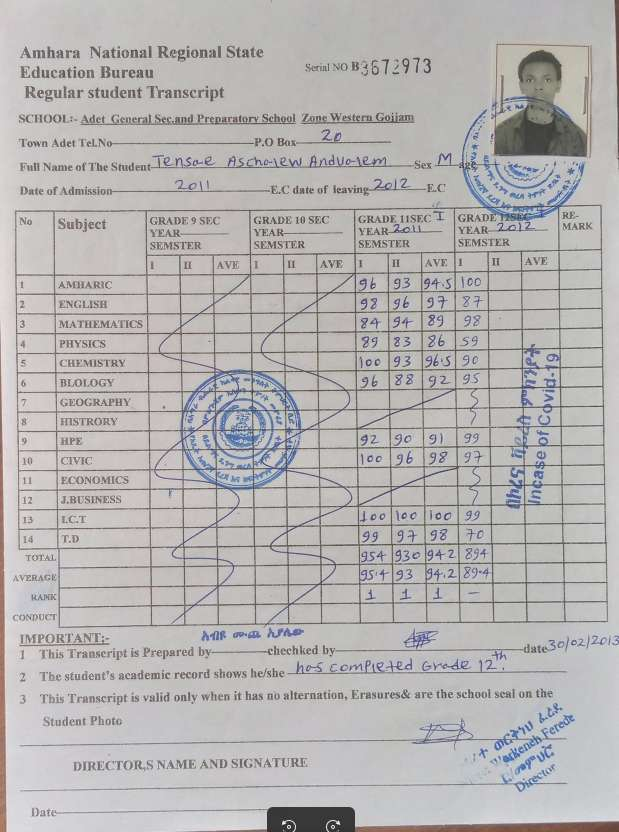 Amhara National Regional State
Education Bureau
Regular student Transcript
Serial NO B3672973
SCHOOL:- Adet General Sec.and Preparatory School Zone Western Gojjam
Town Adet Tel.No P.O Box 20
Full Name of The Student Tensae Aschalew Andualem Sex M age
Date of Admission 2011 E.C date of leaving 2012 E.C
No Subject GRADE 9 SEC GRADE 10 SEC GRADE 11SEC I GRADE 12SEC RE-MARK
YEAR YEAR YEAR 2011 YEAR 2012
SEMSTER SEMSTER SEMSTER SEMSTER
I II AVE I II AVE I II AVE I II AVE
1 AMHARIC 96 93 94.5 100
2 ENGLISH 98 96 97 87
3 MATHEMATICS 84 94 89 98
4 PHYSICS 89 83 86 59
5 CHEMISTRY 100 93 96.5 90
6 BLOLOGY 96 88 92 95
7 GEOGRAPHY
8 HISTRORY
9 HPE 92 90 91 99
10 CIVIC 100 96 98 97
11 ECONOMICS
12 J.BUSINESS
13 I.C.T 100 100 100 99
14 T.D 99 97 98 70
TOTAL 954 930 942 894
AVERAGE 95.4 93 94.2 89.4
RANK 1 1 1 -
CONDUCT
Incase of Covid-19
IMPORTANT:-
1 This Transcript is Prepared by chechked by date 30/02/2013
2 The student's academic record shows he/she has completed Grade 12th.
3 This Transcript is valid only when it has no alternation, Erasures& are the school seal on the
Student Photo
Workeneh Ferede
Director
DIRECTOR,S NAME AND SIGNATURE
Date